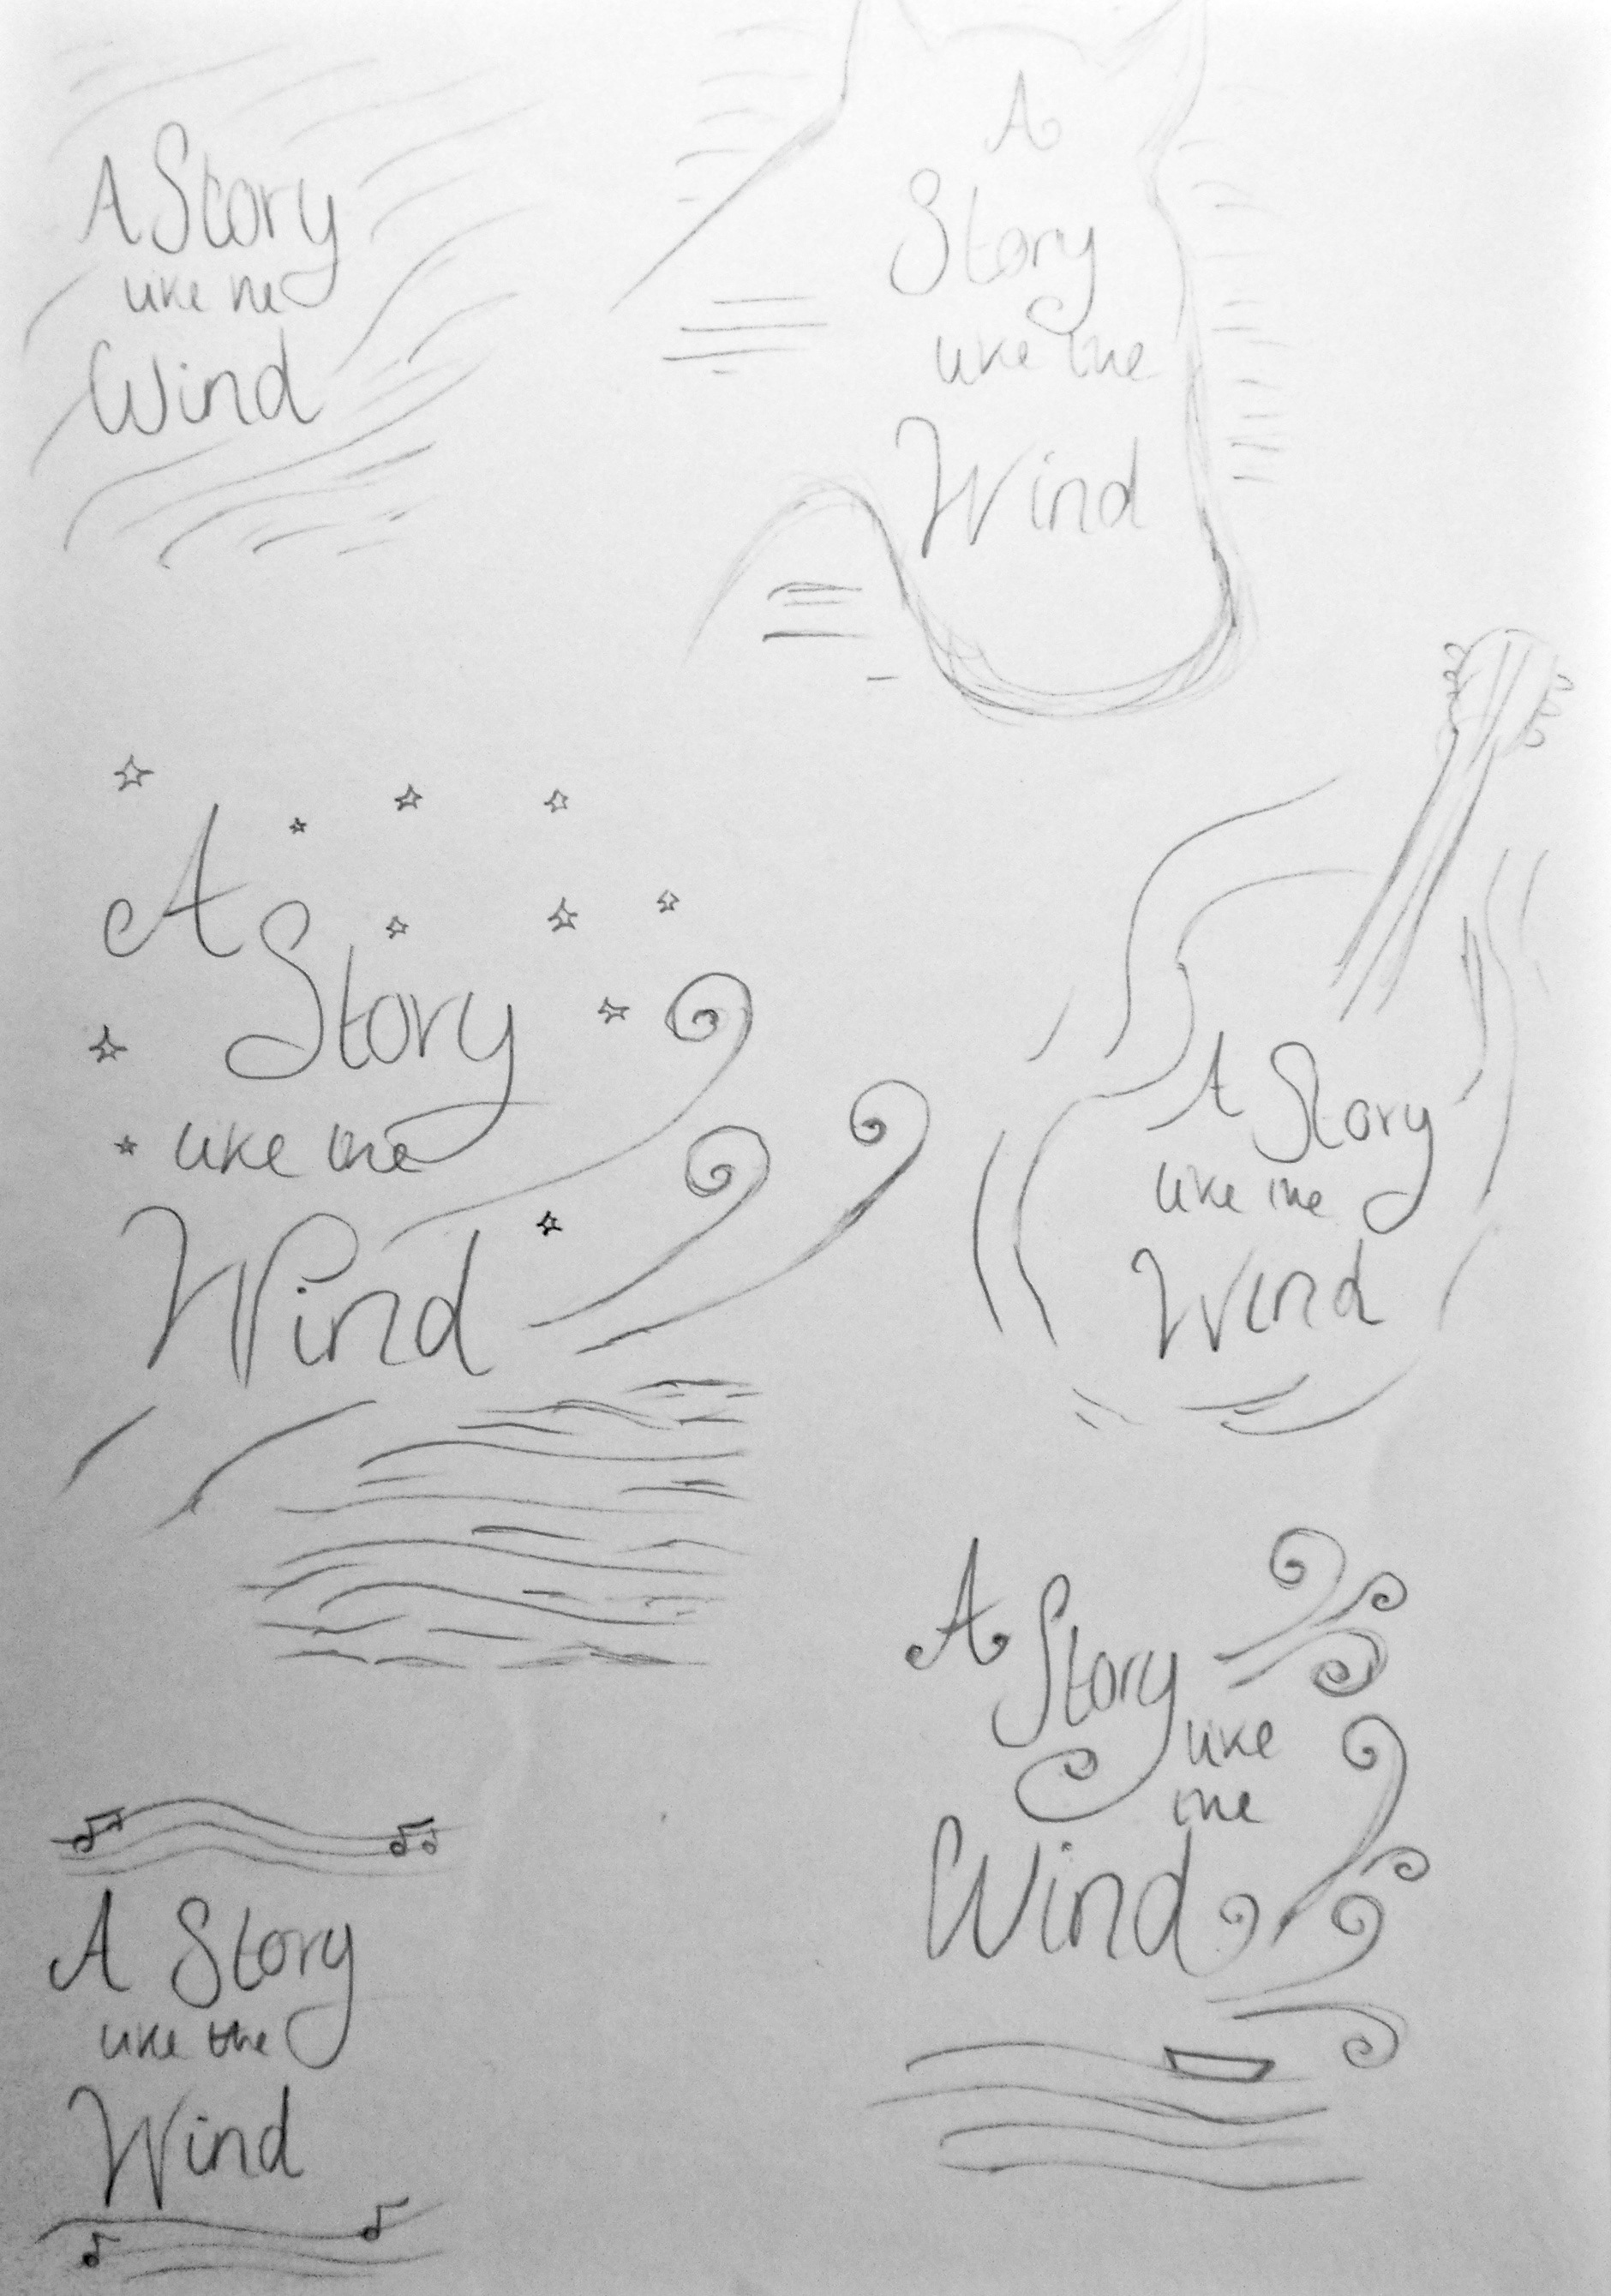 A Story
like the
Wind
A
Story
like the
Wind
A
Story
like the
Wind
A Story
like the
Wind
A
Story
like
the
Wind
A Story
like the
Wind